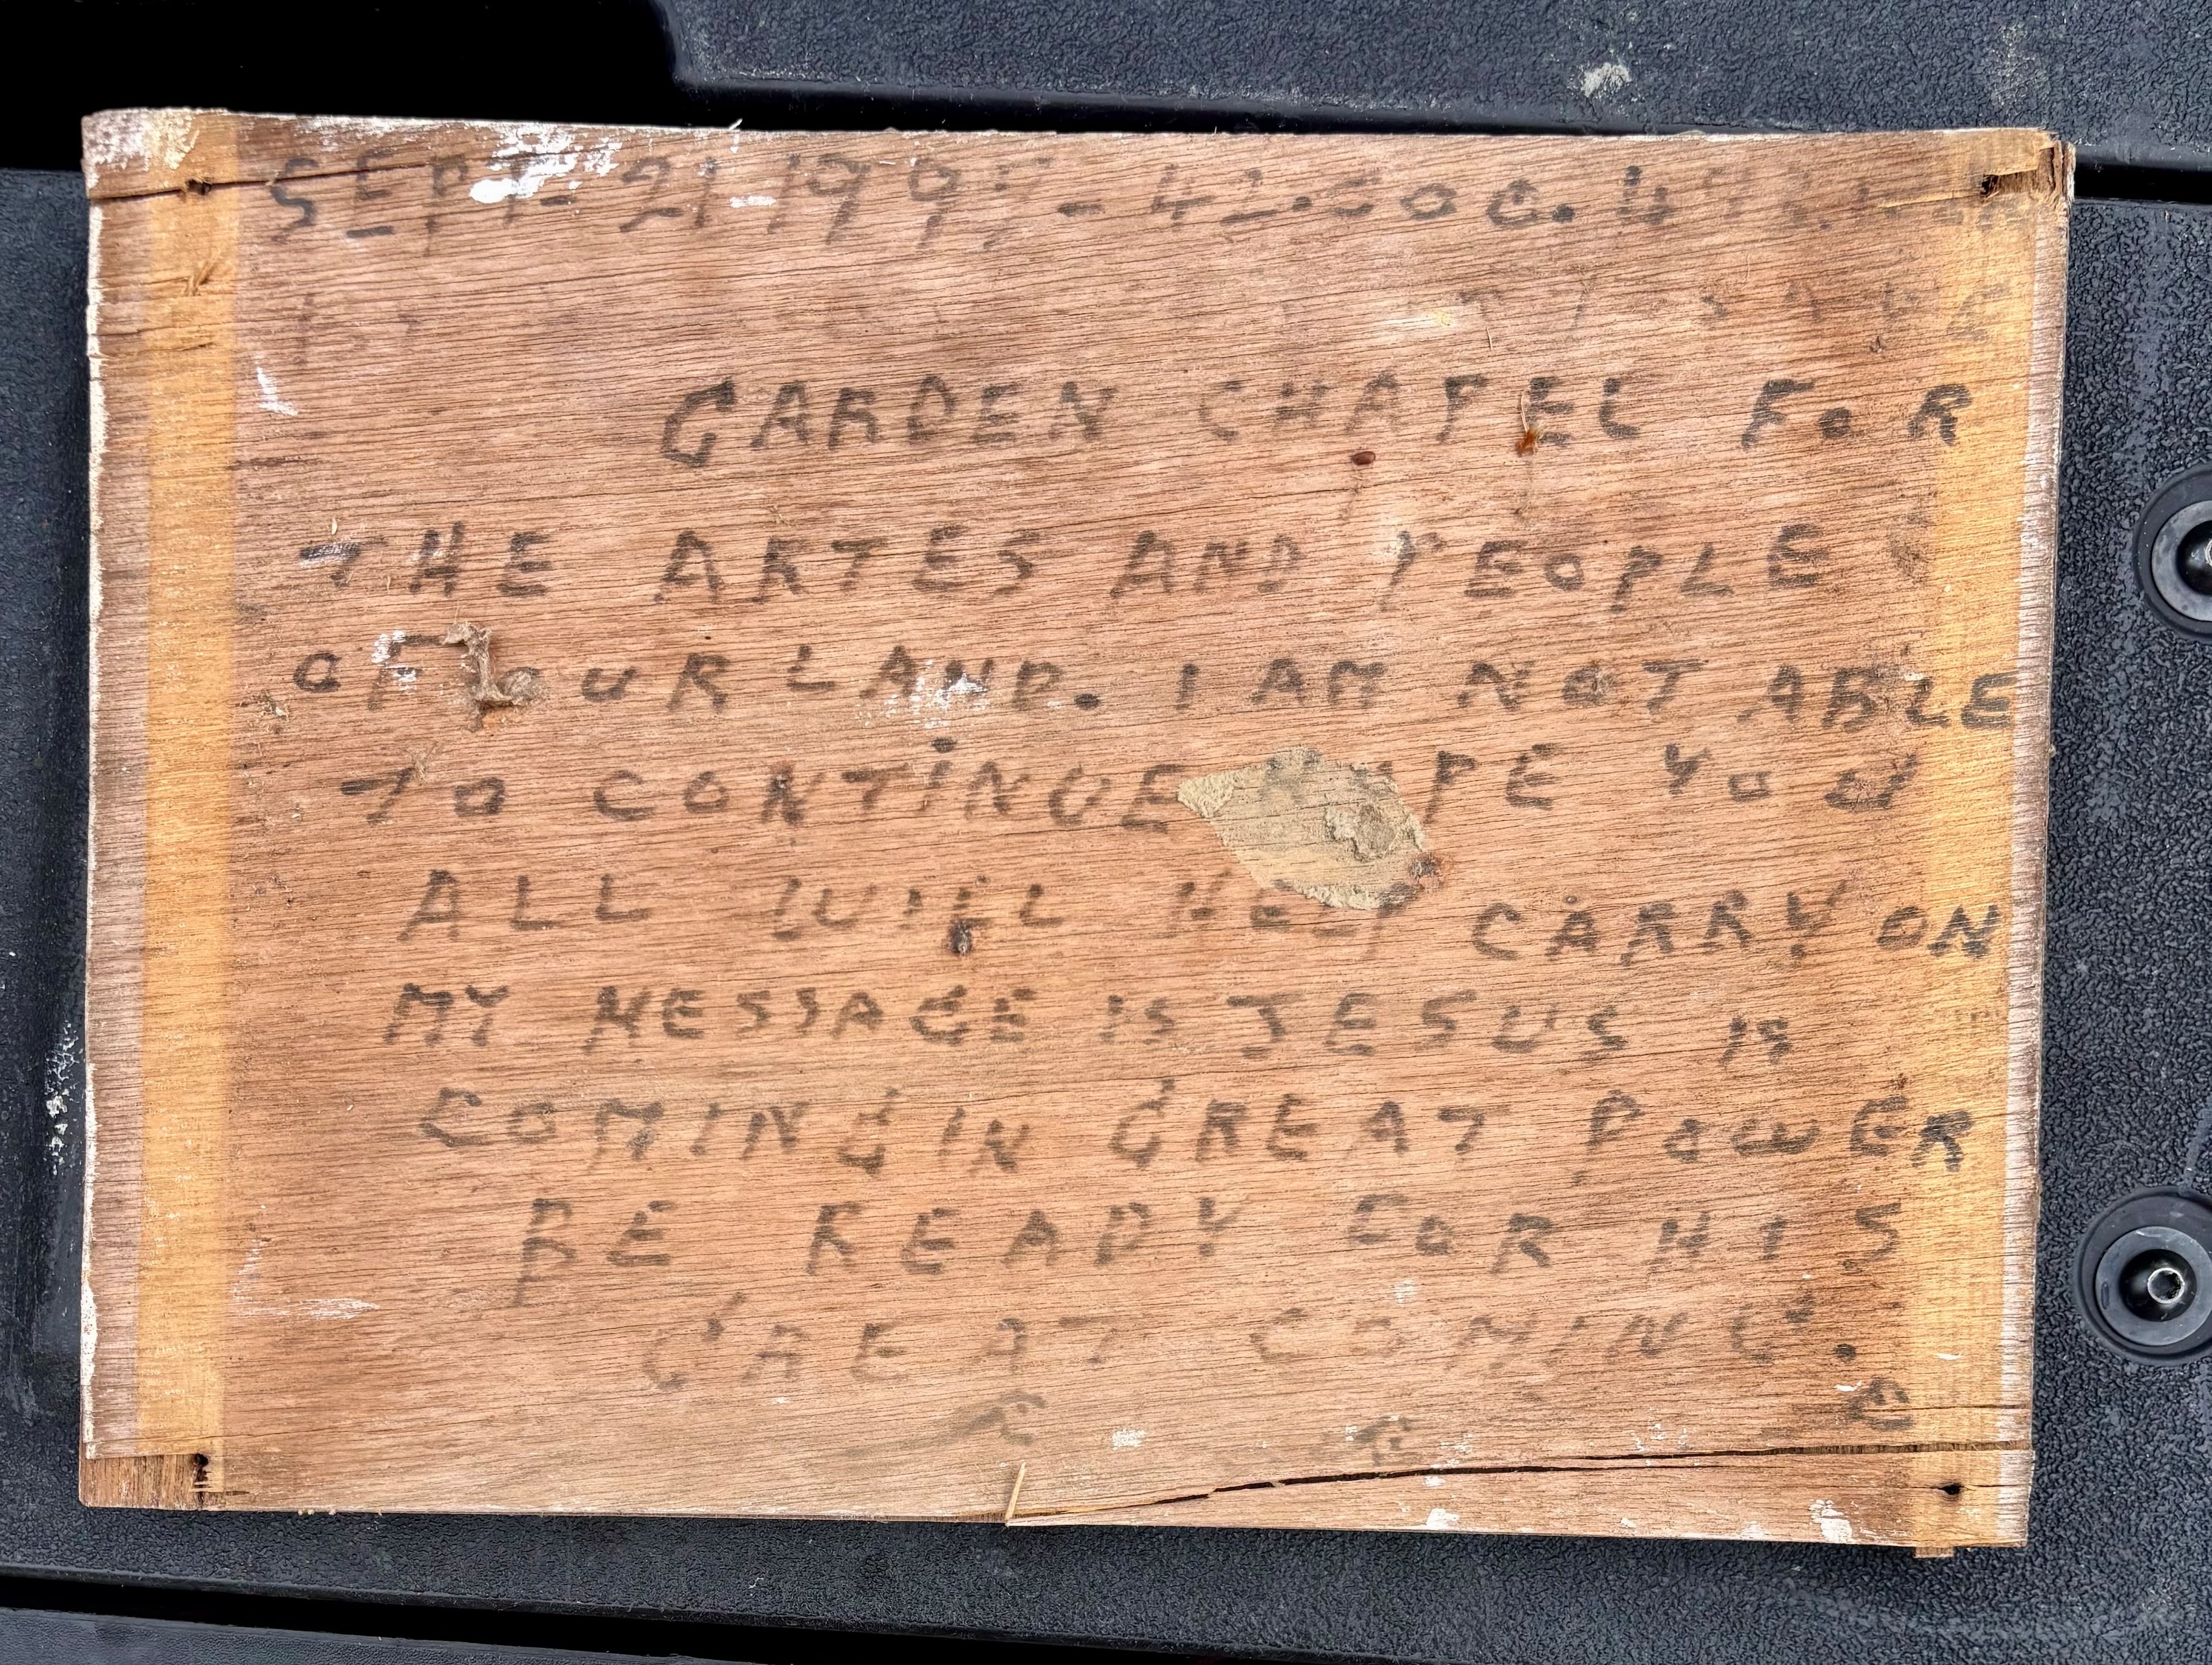 SEPT- 21 1995 - 42.000.
GARDEN CHAPEL FOR
THE ARTES AND PEOPLE
OF OUR LAND. I AM NOT ABLE
TO CONTINUE YOU
ALL WILL HELP CARRY ON
MY MESSAGE IS JESUS IS
COMING IN GREAT POWER
BE READY FOR HIS
GREAT COMING.